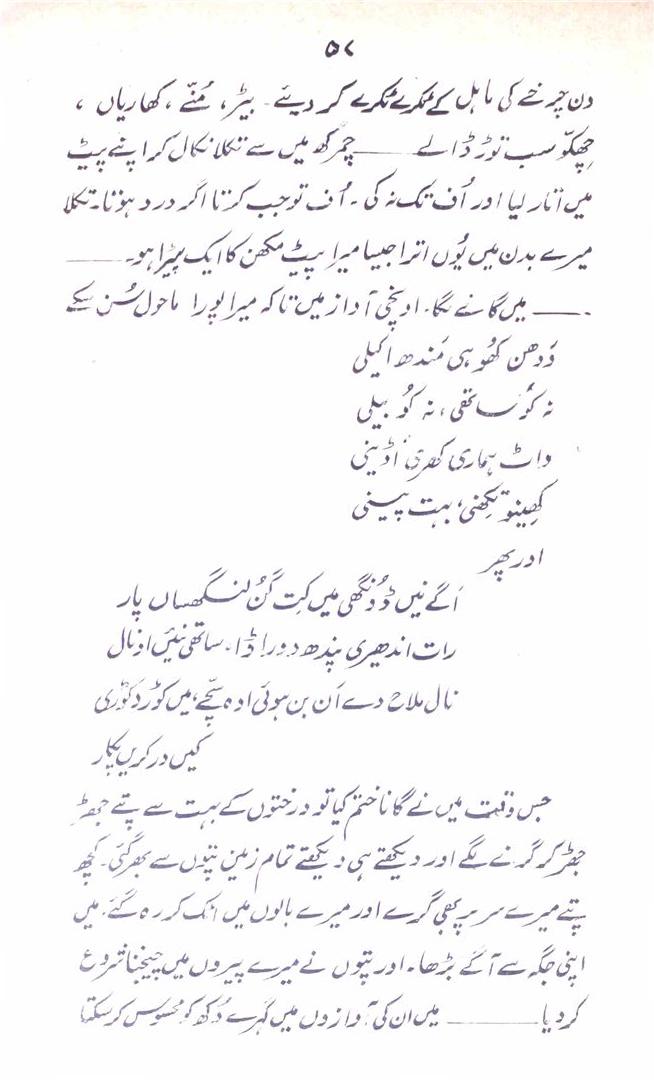 ۵۷
دن چرخے کی ماہل کے ٹکرے ٹکرے کر دیئے۔ بیڑ، مُنّے، کھاریاں،
چِھکّو سب توڑ ڈالے ——— چمرکھ میں سے تکلا نکال کر اپنے پیٹ
میں اتار لیا اور اُف تک نہ کی۔ اُف تو جب کرتا اگر درد ہوتا۔ تکلا
میرے بدن میں یُوں اترا جیسا میرا پیٹ مکھن کا ایک پیڑا ہو۔ ———
۔ ——— میں گانے لگا۔ اونچی آواز میں تاکہ میرا پورا ماحول سُن سکے
وَدھن کھُوہی مَندھ اکیلی
نہ کوُ ساتھی، نہ کوُ بیلی
واٹ ہماری کھری اُڈینی
کھِینو تِکھنی، بہت پیِنی
اور پھر
اَگے نیں ڈونگھی میں کِت گُن لنگھساں پار
رات اندھیری پندھ دوراڈا۔ ساتھی نئیں او نال
نال ملاح دے اَن بن ہوئی اوہ سچّے، میں کوُڑ دکوُڑی
کیں در کریں پکار
جس وقت میں نے گانا ختم کیا تو درختوں کے بہت سے پتے جھڑ
جھڑ کر گرنے لگے اور دیکھتے ہی دیکھتے تمام زمین پتوں سے بھر گئی۔ کچھ
پتے میرے سر پر بھی گرے اور میرے بالوں میں اٹک کر رہ گئے۔ میں
اپنی جگہ سے آگے بڑھا۔ اور پتوں نے میرے پیروں میں چیخنا شروع
کر دیا ——— میں ان کی آوازوں میں گہرے دُکھ کو محسوس کر سکتا